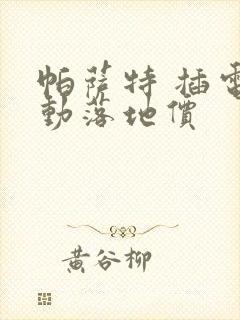 帕萨特 插電
動落地價
黃谷柳